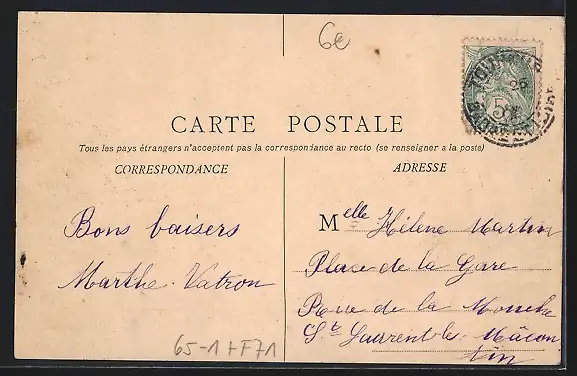 6e
5
CARTE POSTALE
Tous les pays étrangers n'acceptent pas la correspondance au recto (se renseigner a la poste)
CORRESPONDANCE
ADRESSE
Bons baisers
Marthe Vatron
Melle Hélène Martin
Place de la Gare
de la Mouche
St Laurent-les-Mâcon
Ain
65-1+F71